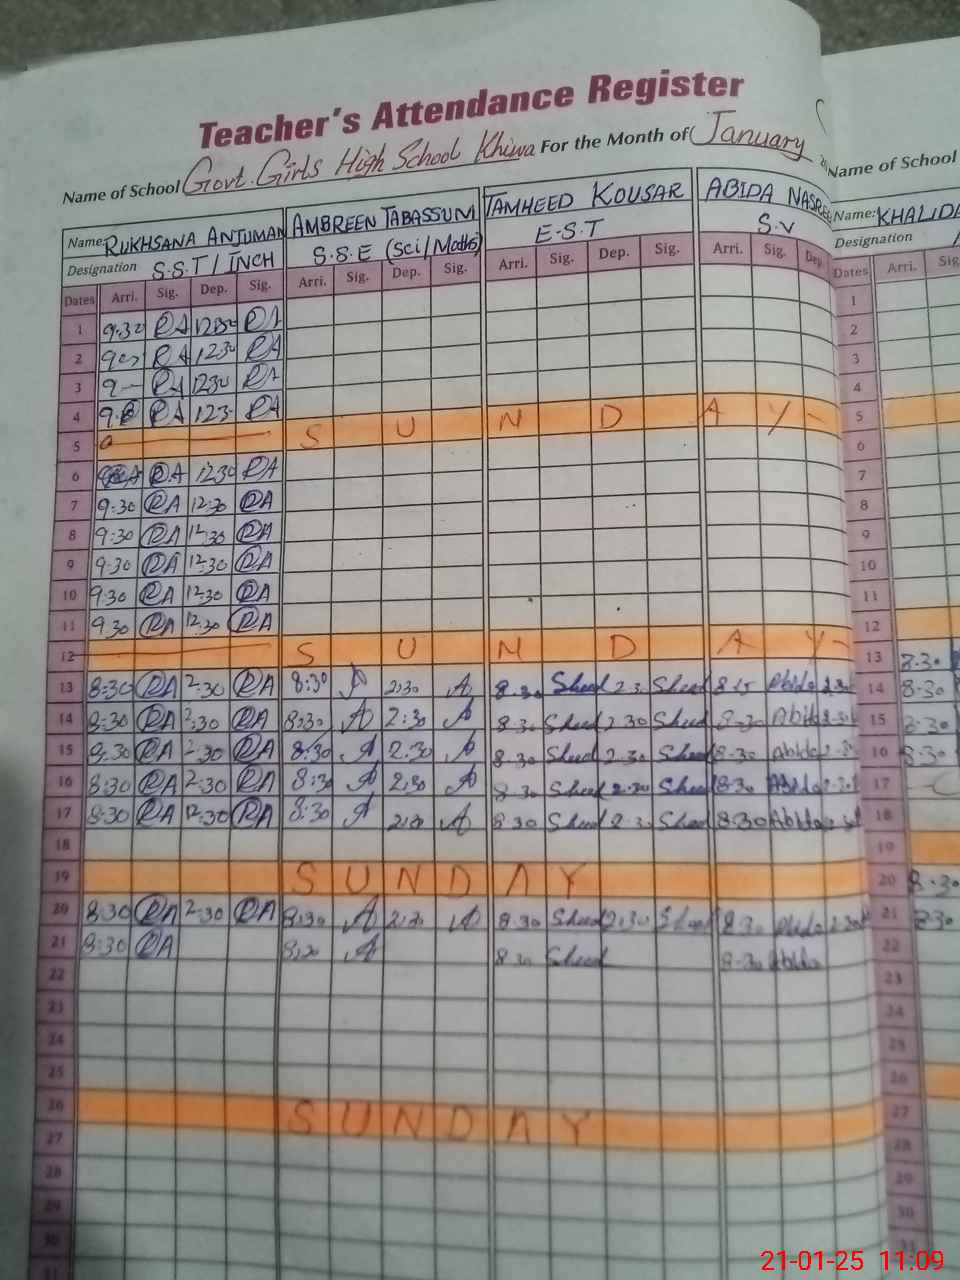 Teacher's Attendance Register
Name of School Govt. Girls High School Khiwa For the Month of January
Name of School
Name: RUKHSANA ANJUMAN AMBREEN TABASSUM TAMHEED KOUSAR ABIDA NASREE
Name: KHALIDA
Designation S.S.T / INCH S.S.E (Sci/Maths) E-S.T S.V
Designation
Dates Arri. Sig. Dep. Sig. Arri. Sig. Dep. Sig. Arri. Sig. Dep. Sig. Arri. Sig. Dep. Dates Arri. Sig
1 9.30 RA 1230 RA 1
2 RA 1230 RA 2
3 9 RA 1230 RA 3
4 RA 123 RA 4
5 S U N D A Y 5
6 RA 1230 RA 6
7 9:30 RA 12:30 RA 7
8 9:30 RA 12:30 RA 8
9 9:30 RA 12:30 RA 9
10 9:30 RA 12:30 RA 10
11 9:30 RA 12:30 RA 11
12 S U N D A Y 12
13 8:30 RA 2:30 RA 8:30 A 2:30 A 8.30 Sheed 2.3 Sheed 8.15 Abida 2.30 13 8.30
14 8:30 RA 2:30 RA 8:30 A 2:30 A 8.30 Sheed 2.30 Sheed 8.30 Abida 14 8.30
15 8:30 RA 2:30 RA 8:30 A 2:30 A 8.30 Sheed 2.30 Sheed 8.30 Abida 15 8.30
16 8:30 RA 2:30 RA 8:30 A 2:30 A 8.30 Sheed 2.30 Sheed 8.30 Abida 16 8.30
17 8:30 RA 12:30 RA 8:30 A 2:30 A 8.30 Sheed 2.3 Sheed 8.30 Abida 17
18 18
19 S U N D A Y 19
20 8:30 RA 2:30 RA 8:30 A 2:30 A 8.30 Sheed 2.30 Sheed 8.30 Abida 2.30 20 8.30
21 8:30 RA 8:30 A 8.30 Sheed 8.30 Abida 21 8.30
22 22
23 23
24 24
25 25
26 S U N D A Y 26
27 27
28 28
29 29
30 30
31 31
21-01-25 11:09